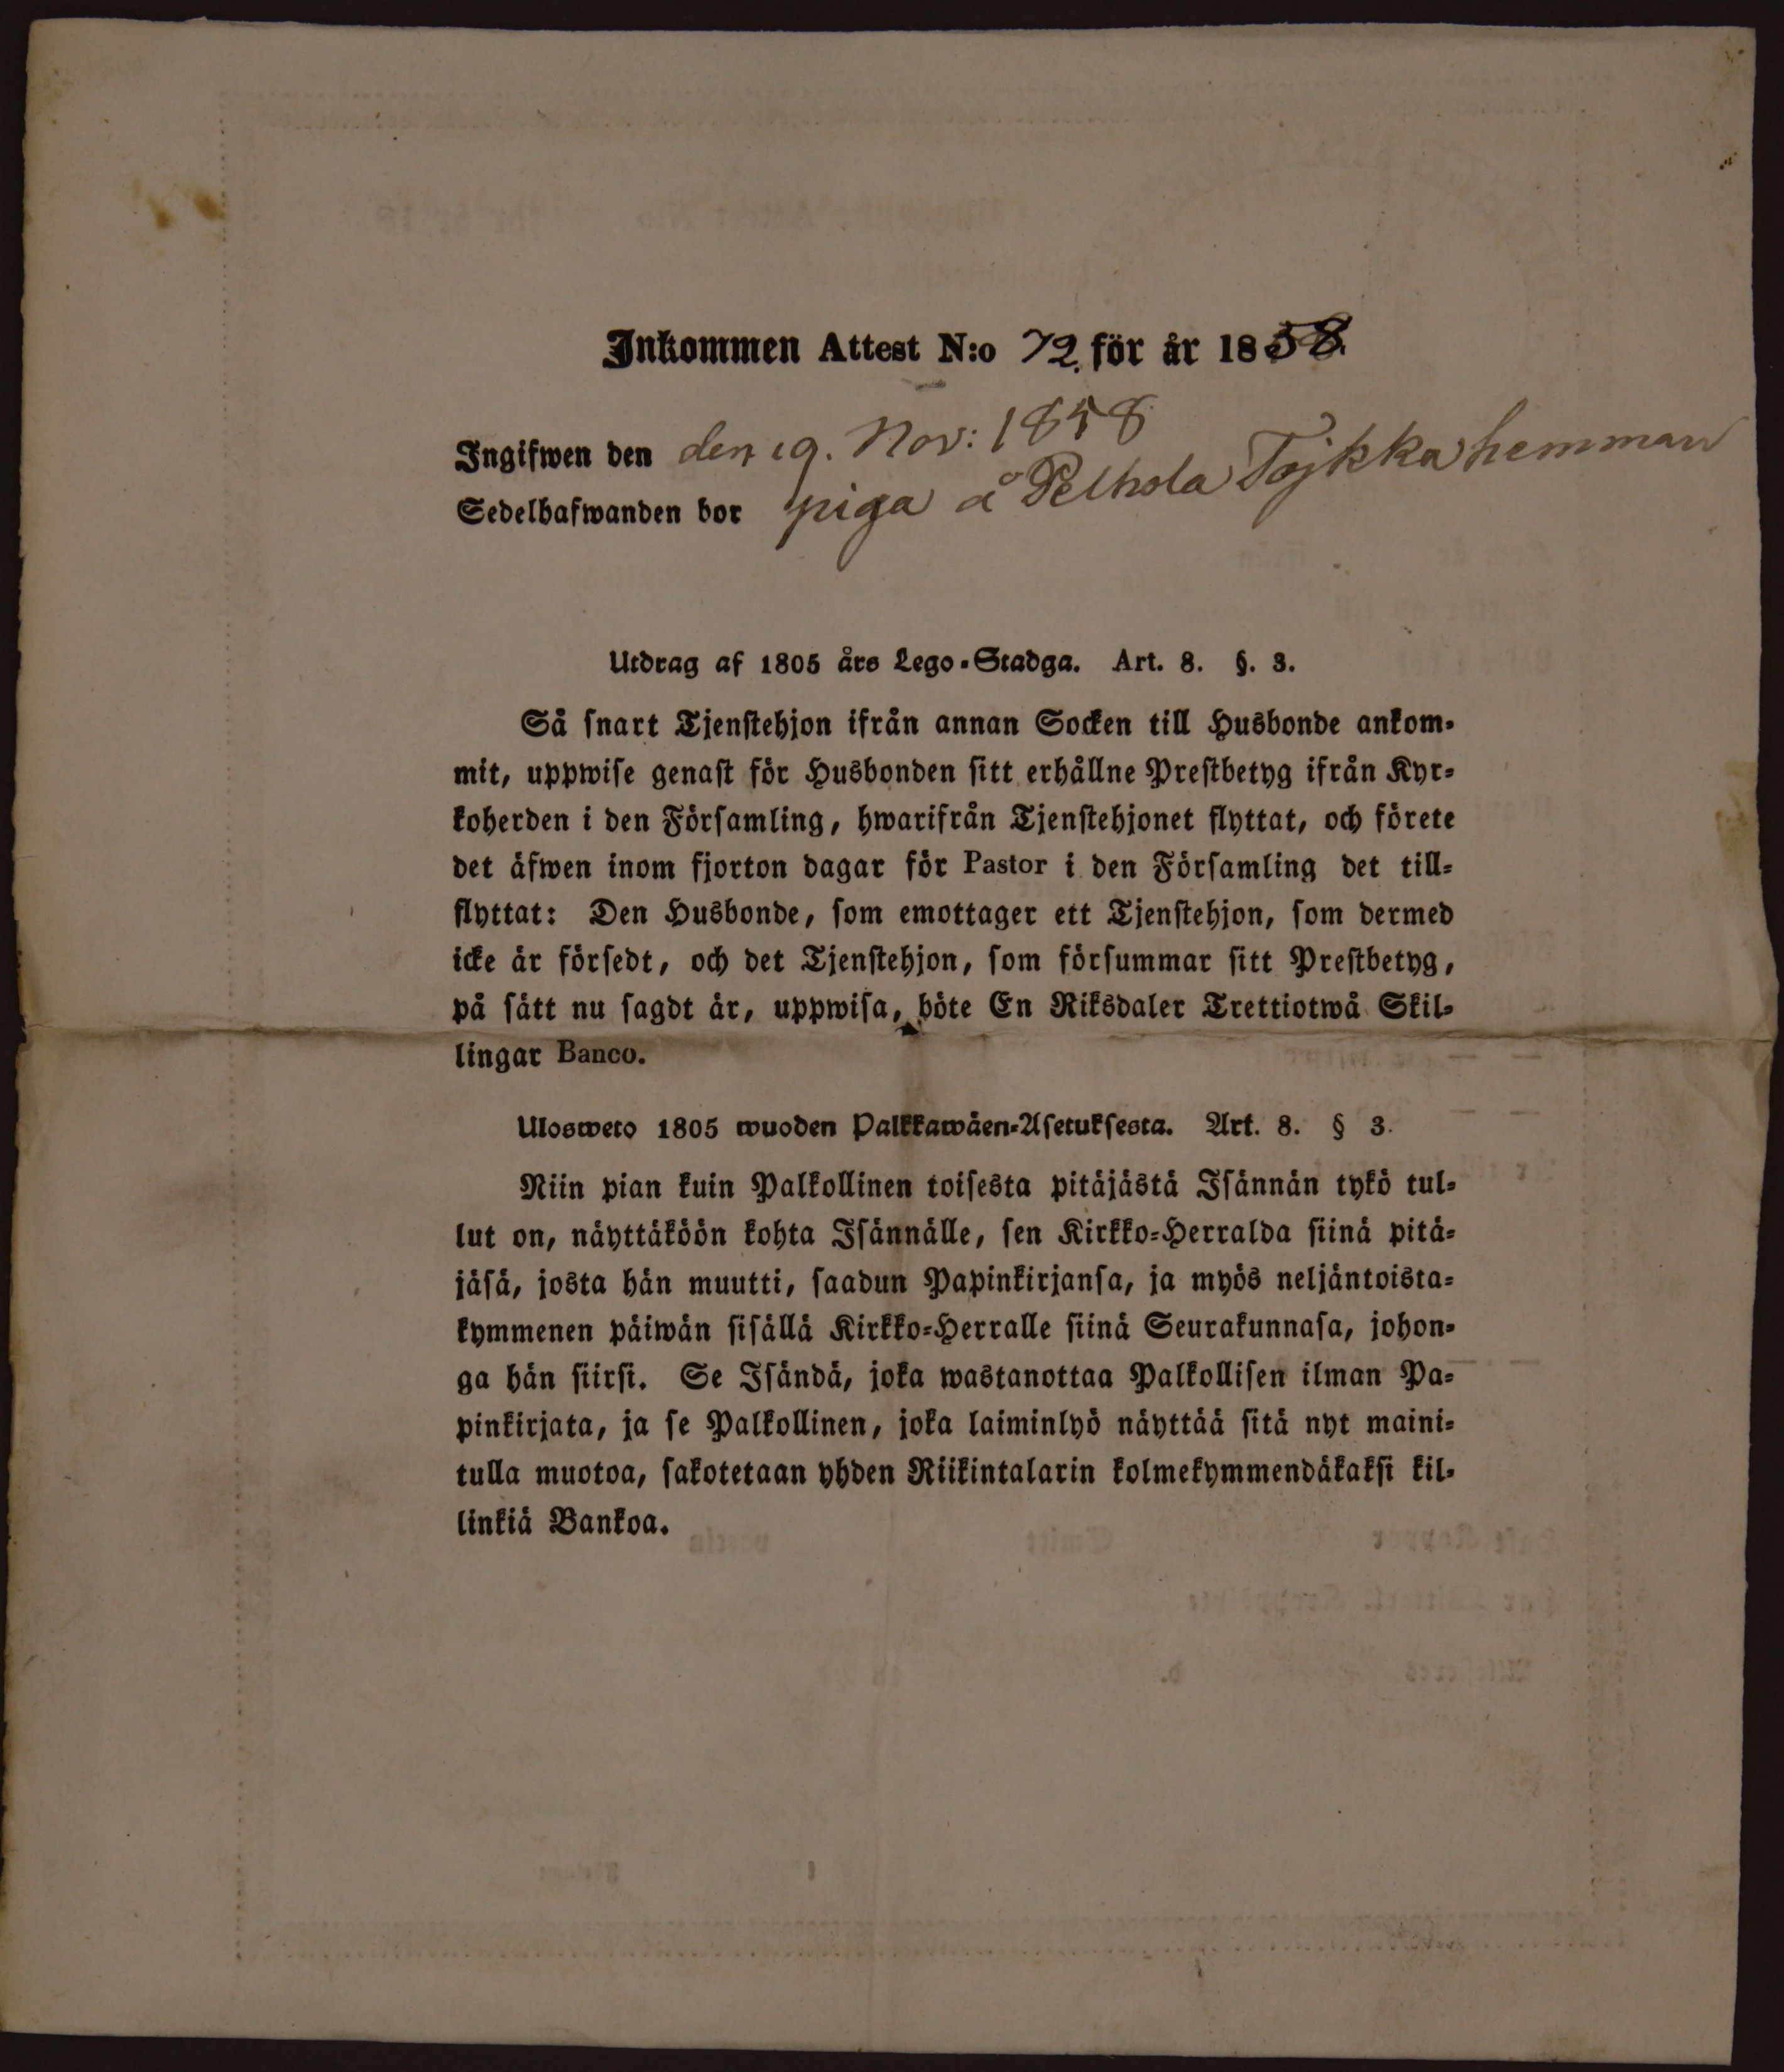 Inkommen Attest N:o 72. för år 1858.
Ingifwen den den 19. Nov: 1858
Sedelhafwanden bor piga å Pelhola Tojkka hemman
Utdrag af 1805 års Lego-Stadga. Art. 8. §. 3.
Så snart Tjenstehjon ifrån annan Socken till Husbonde ankom-
mit, uppwise genast för Husbonden sitt erhållne Prestbetyg ifrån Kyr-
koherden i den Församling, hwarifrån Tjenstehjonet flyttat, och förete
det äfwen inom fjorton dagar för Pastor i den Församling det till-
flyttat: Den Husbonde, som emottager ett Tjenstehjon, som dermed
icke är försedt, och det Tjenstehjon, som försummar sitt Prestbetyg,
på sätt nu sagdt är, uppwisa, böte En Riksdaler Trettiotwå Skil-
lingar Banco.
Ulosweto 1805 wuoden Palkkawäen-Asetuksesta. Art. 8. § 3.
Niin pian kuin Palkollinen toisesta pitäjästä Isännän tykö tul-
lut on, näyttäköön kohta Isännälle, sen Kirkko-Herralda siinä pitä-
jäsä, josta hän muutti, saadun Papinkirjansa, ja myös neljäntoista-
kymmenen päiwän sisällä Kirkko-Herralle siinä Seurakunnasa, johon-
ga hän siirsi. Se Isändä, joka wastanottaa Palkollisen ilman Pa-
pinkirjata, ja se Palkollinen, joka laiminlyö näyttää sitä nyt maini-
tulla muotoa, sakotetaan yhden Riikintalarin kolmekymmendäkaksi kil-
linkiä Bankoa.